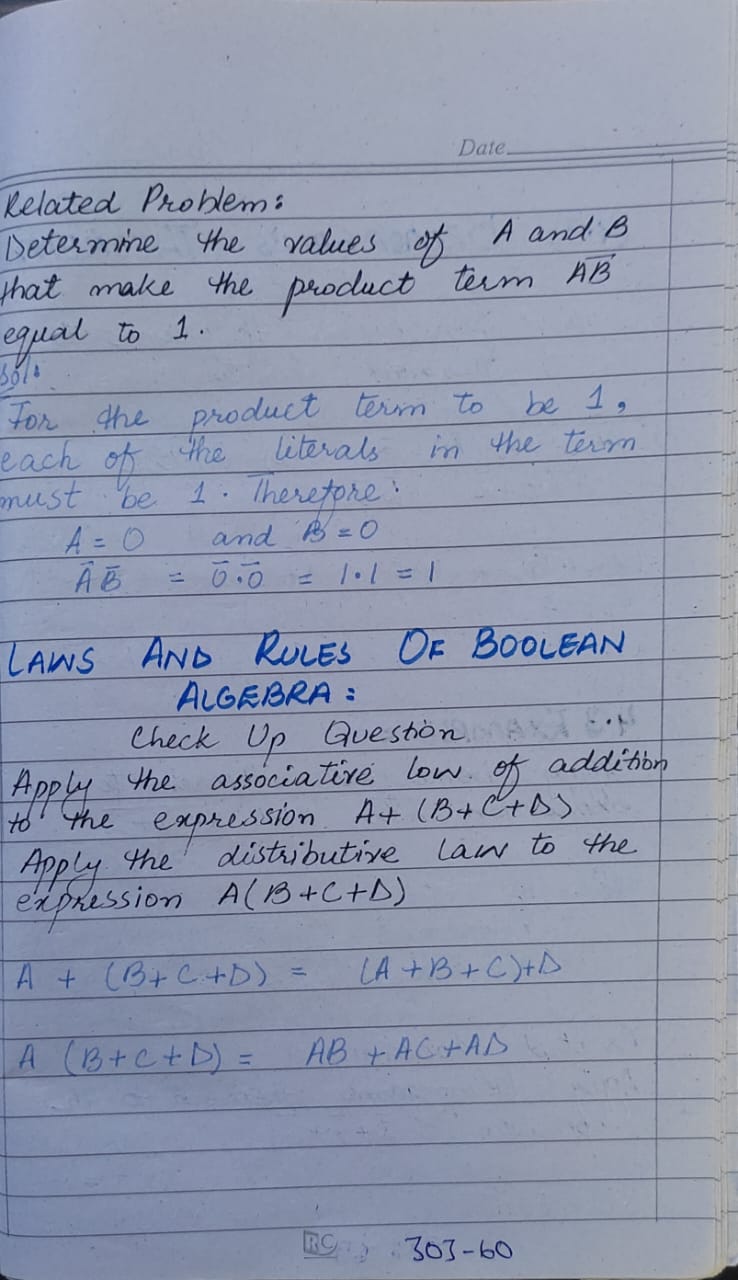 Date
Related Problem:
Determine the values of A and B
that make the product term A̅B̅
equal to 1.
Sol:
For the product term to be 1,
each of the literals in the term
must be 1. Therefore:
A = 0 and B = 0
A̅ B̅ = 0̅.0̅ = 1.1 = 1
LAWS AND RULES OF BOOLEAN
ALGEBRA:
Check Up Question
Apply the associative low of addition
to the expression A+ (B+C+D)
Apply the distributive law to the
expression A(B+C+D)
A + (B+C+D) = (A+B+C)+D
A (B+C+D) = AB + AC+AD
RC 303-60